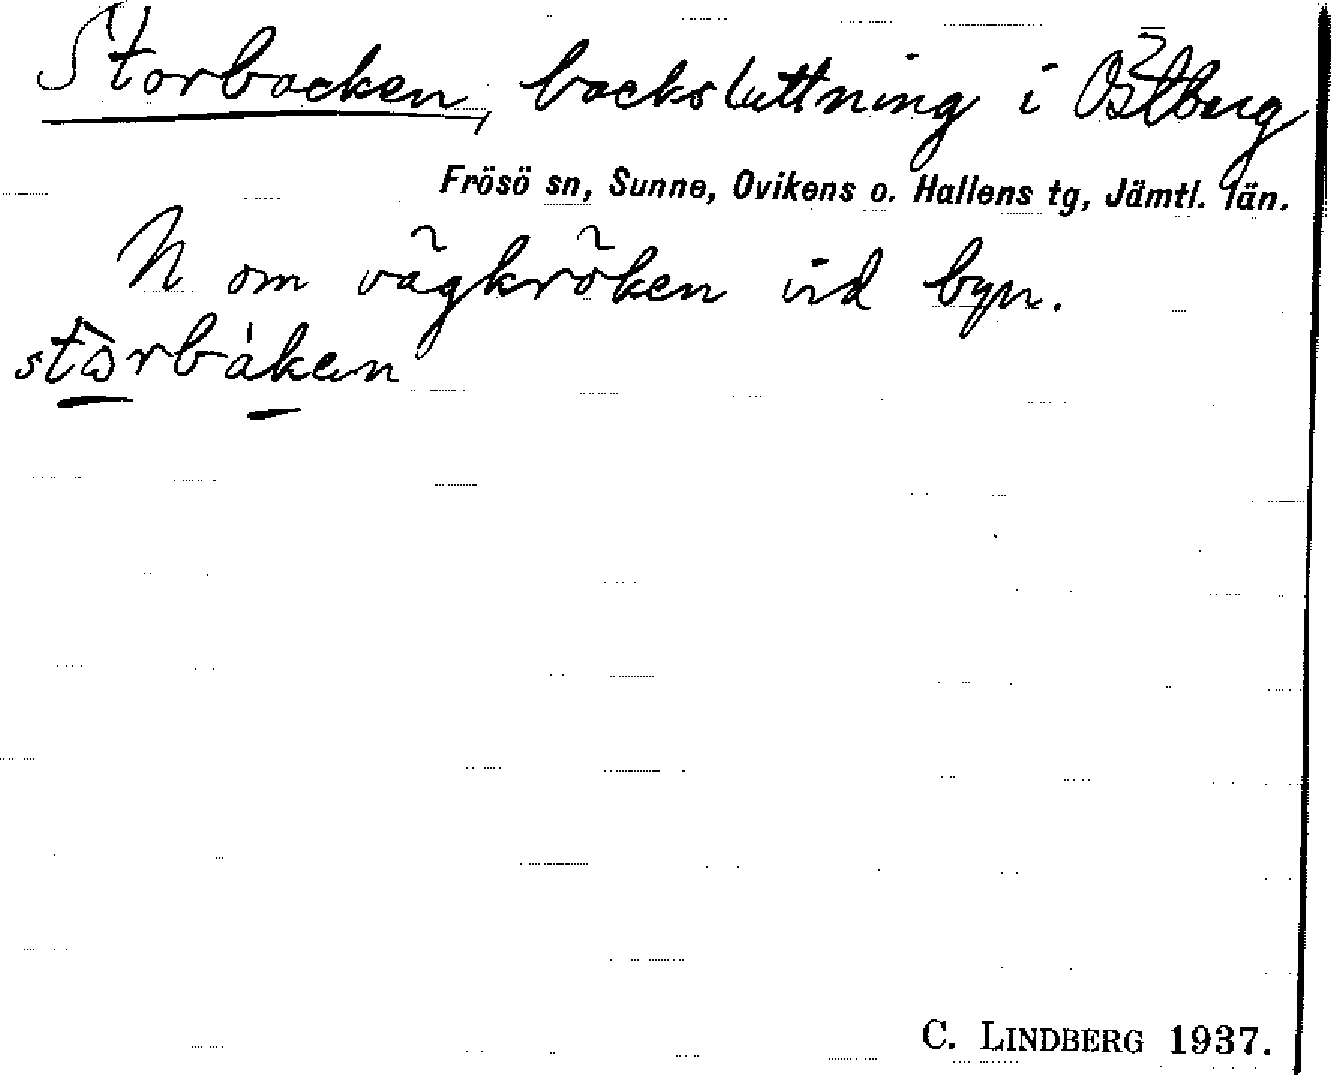 Storbacken, backsluttning i Östberg
Frösö sn, Sunne, Ovikens o. Hallens tg, Jämtl. län.
N om vägkröken vid byn.
stòrbáken
C. LINDBERG 1937.